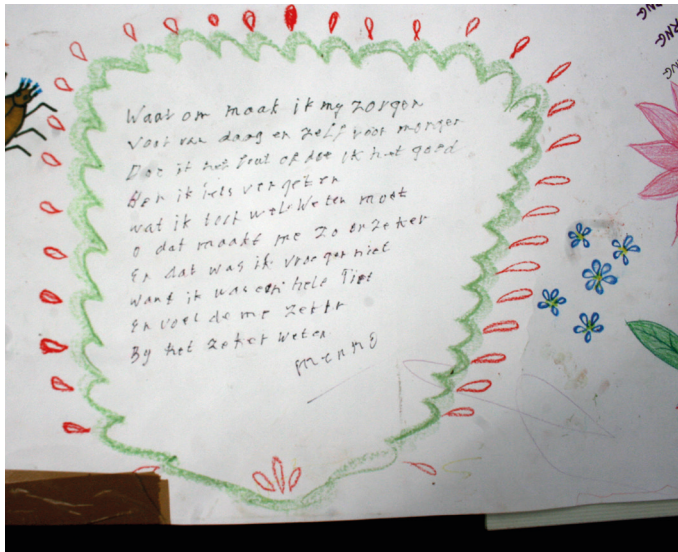 Waarom maak ik my zorgen
voor van daag en zelf voor morgen
Doe ik het fout of doe ik het goed
Ben ik iets vergeten
wat ik toch wel weten moet
o dat maakt me zo onzeker
En dat was ik vroeger niet
want ik was een hele Piet
En voel de me zeker
By het zeker weten
menno
RNG
RNG
RNG